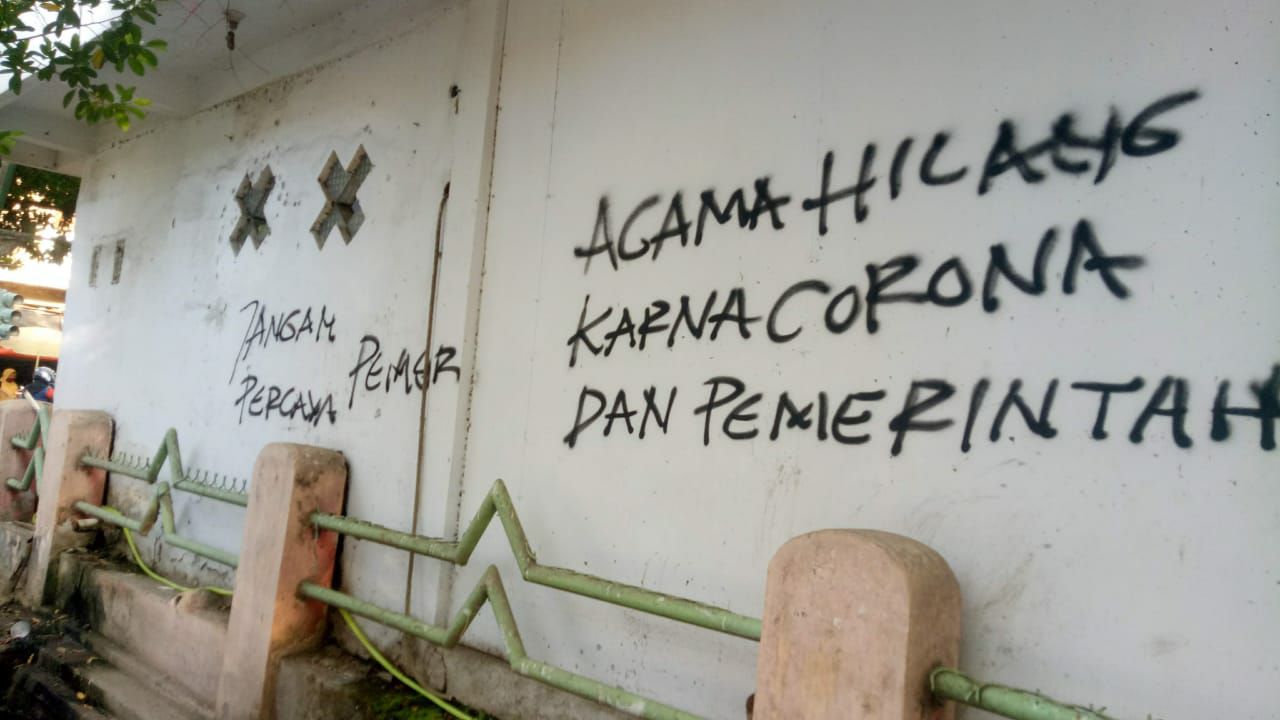 JANGAM
PERCAYA PEMER
AGAMA HILANG
KARNA CORONA
DAN PEMERINTAH